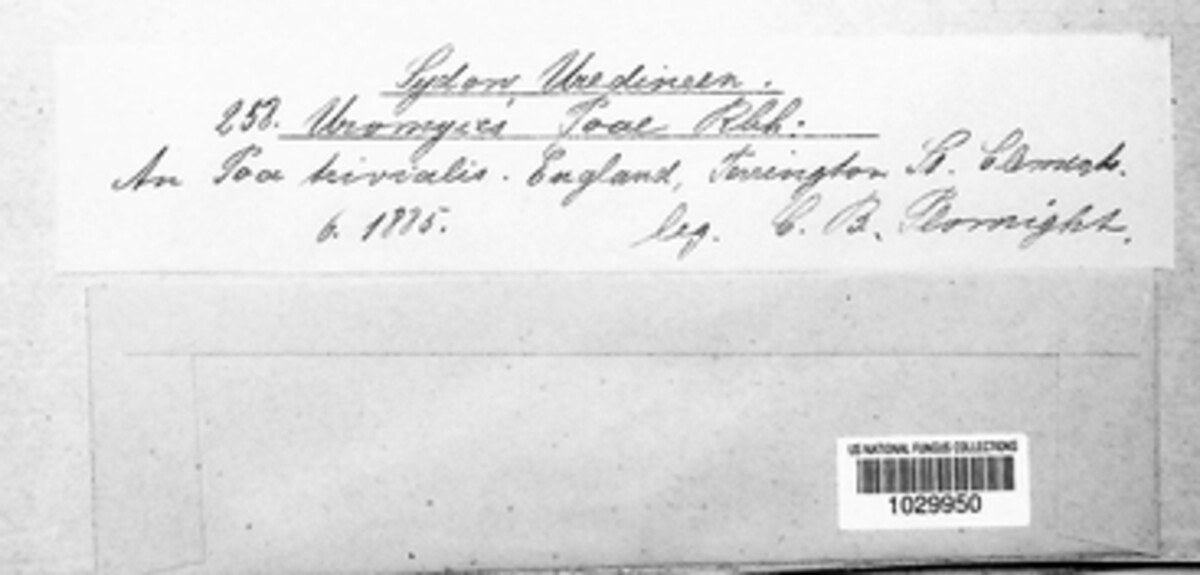 Sydow, Uredineen.
258. Uromyces Poae Rbh.
An Poa trivialis. England, Terrington St. Clement.
6. 1885. leg. C. B. Plowright.
US NATIONAL FUNGUS COLLECTIONS
1029950